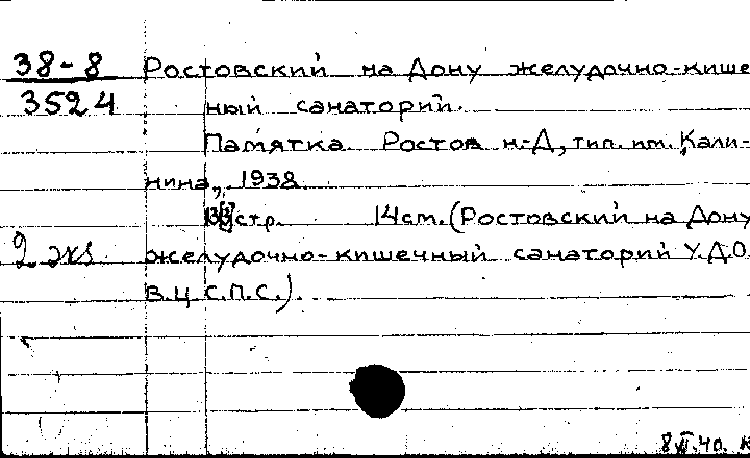 38-8 Ростовский на Дону желудочно-кише
3524 ный санаторий.
Памятка Ростов н-Д, тип. им. Кали-
нина, 1938
стр. 14см. (Ростовский на Дону
2 экз желудочно-кишечный санаторий У.Д.О.
В.Ц.С.П.С.).
8.II.40.